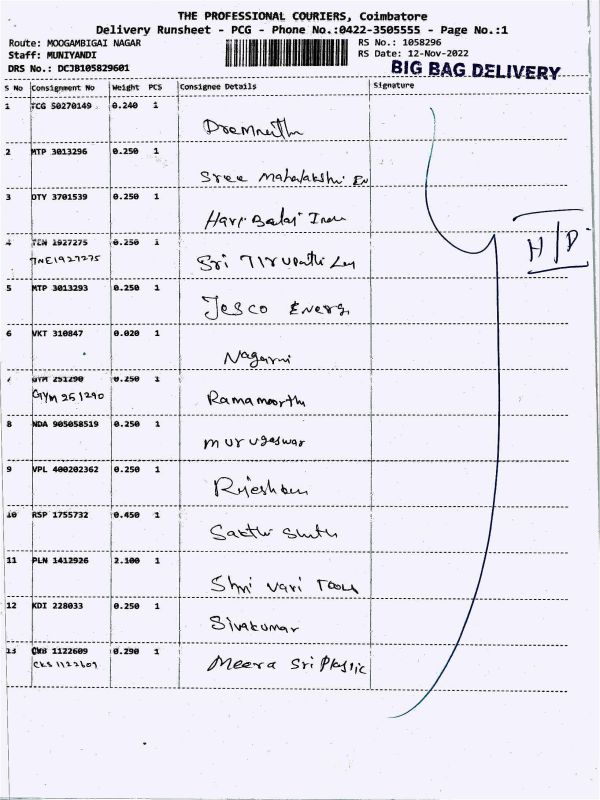 THE PROFESSIONAL COURIERS, Coimbatore
Delivery Runsheet - PCG - Phone No.:0422-3505555 - Page No.:1
Route: MOOGAMBIGAI NAGAR RS No.: 1058296
Staff: MUNIYANDI RS Date: 12-Nov-2022
DRS No.: DCJB105829601 BIG BAG DELIVERY
S No Consignment No Weight PCS Consignee Details Signature
1 TCG 50270149 0.240 1
2 MTP 3013296 0.250 1
Sree Mahalakshi En
3 DTY 3701539 0.250 1
Hari Balaj
4 TEN 1927275 0.250 1
TNE1927275 Sri Tirupathi
H/D
5 MTP 3013293 0.250 1
Jesco Energ
6 VKT 310847 0.020 1
7 GYM 251290 0.250 1
GYM 251290 Ramamoorthi
8 NDA 905058519 0.250 1
murugeswar
9 VPL 400202362 0.250 1
10 RSP 1755732 0.450 1
Sakthi
11 PLN 1412926 2.100 1
Shri Vari Tools
12 KDI 228033 0.250 1
Sivakumar
13 CKB 1122609 0.290 1
1122609 Meera Sri Plastic